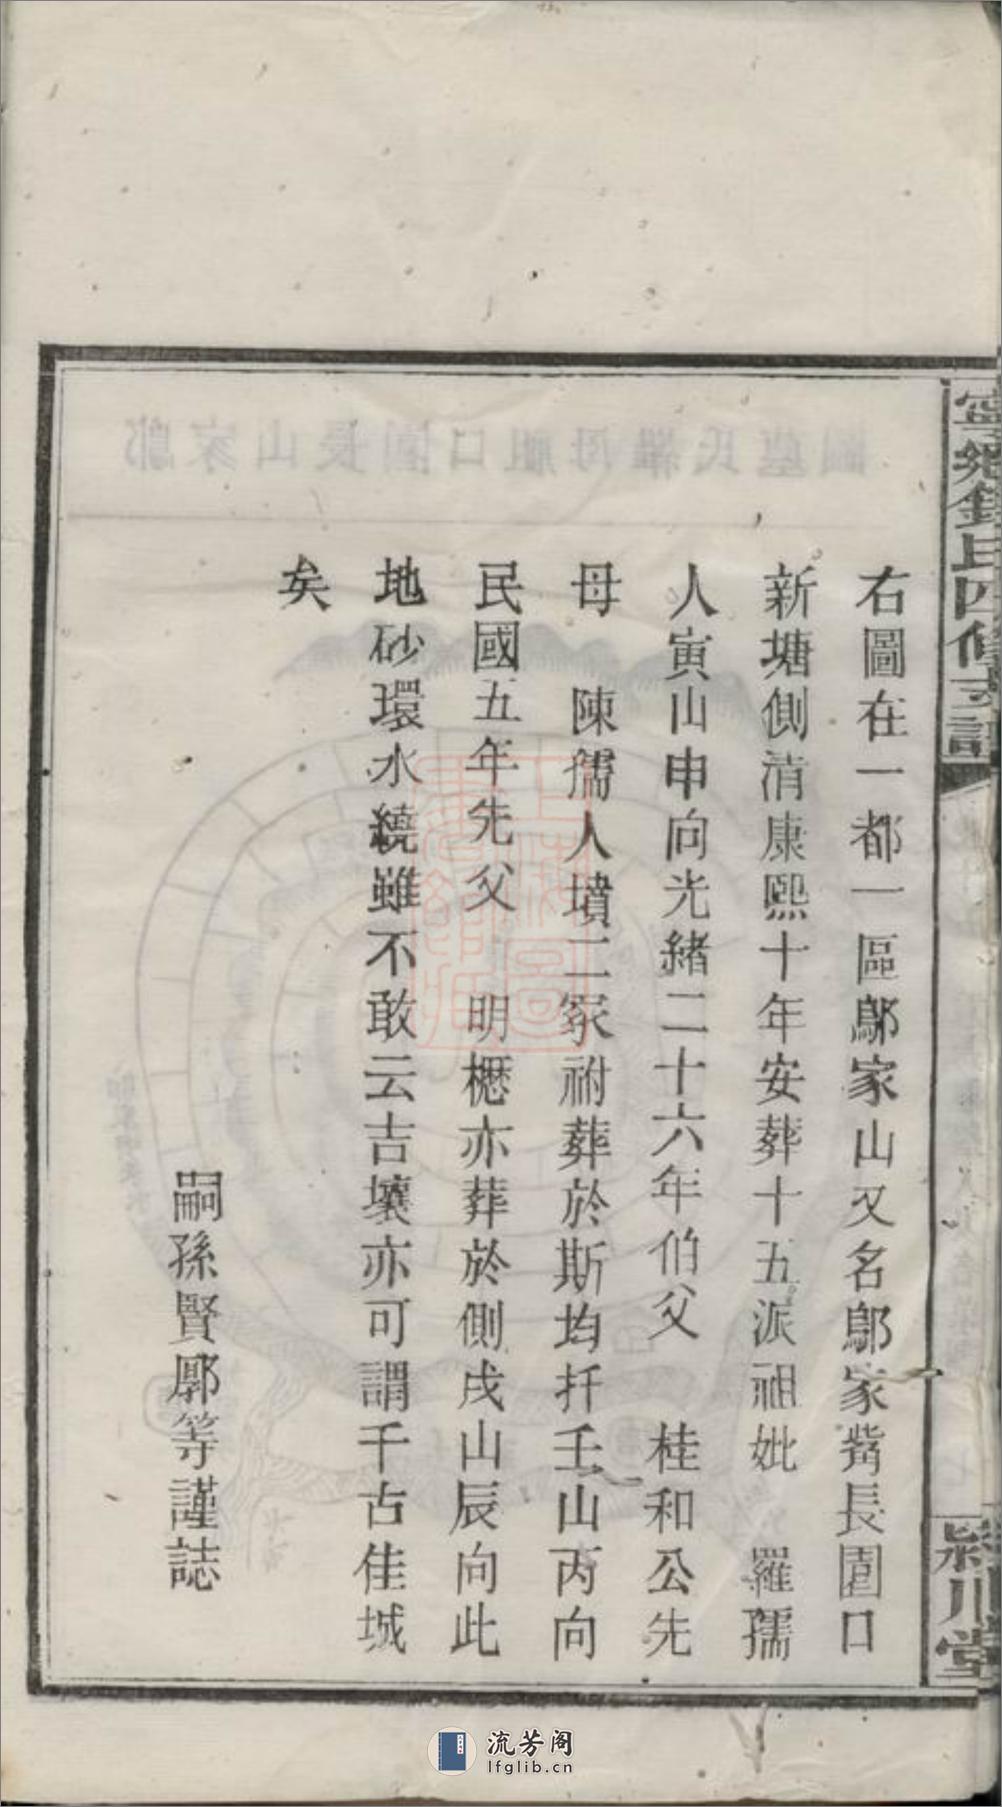 右圖在一都一區鄔家山又名鄔家嘴長園口
新塘側清康熙十年安葬十五派祖妣　羅孺
人寅山申向光緒二十六年伯父　桂和公先
母　陳孺人墳二冢祔葬於斯均扦壬山丙向
民國五年先父　明樾亦葬於側戌山辰向此
地砂環水繞雖不敢云吉壤亦可謂千古佳城
矣
嗣孫賢廓等謹誌
潁川堂
流芳阁
lfglib.cn